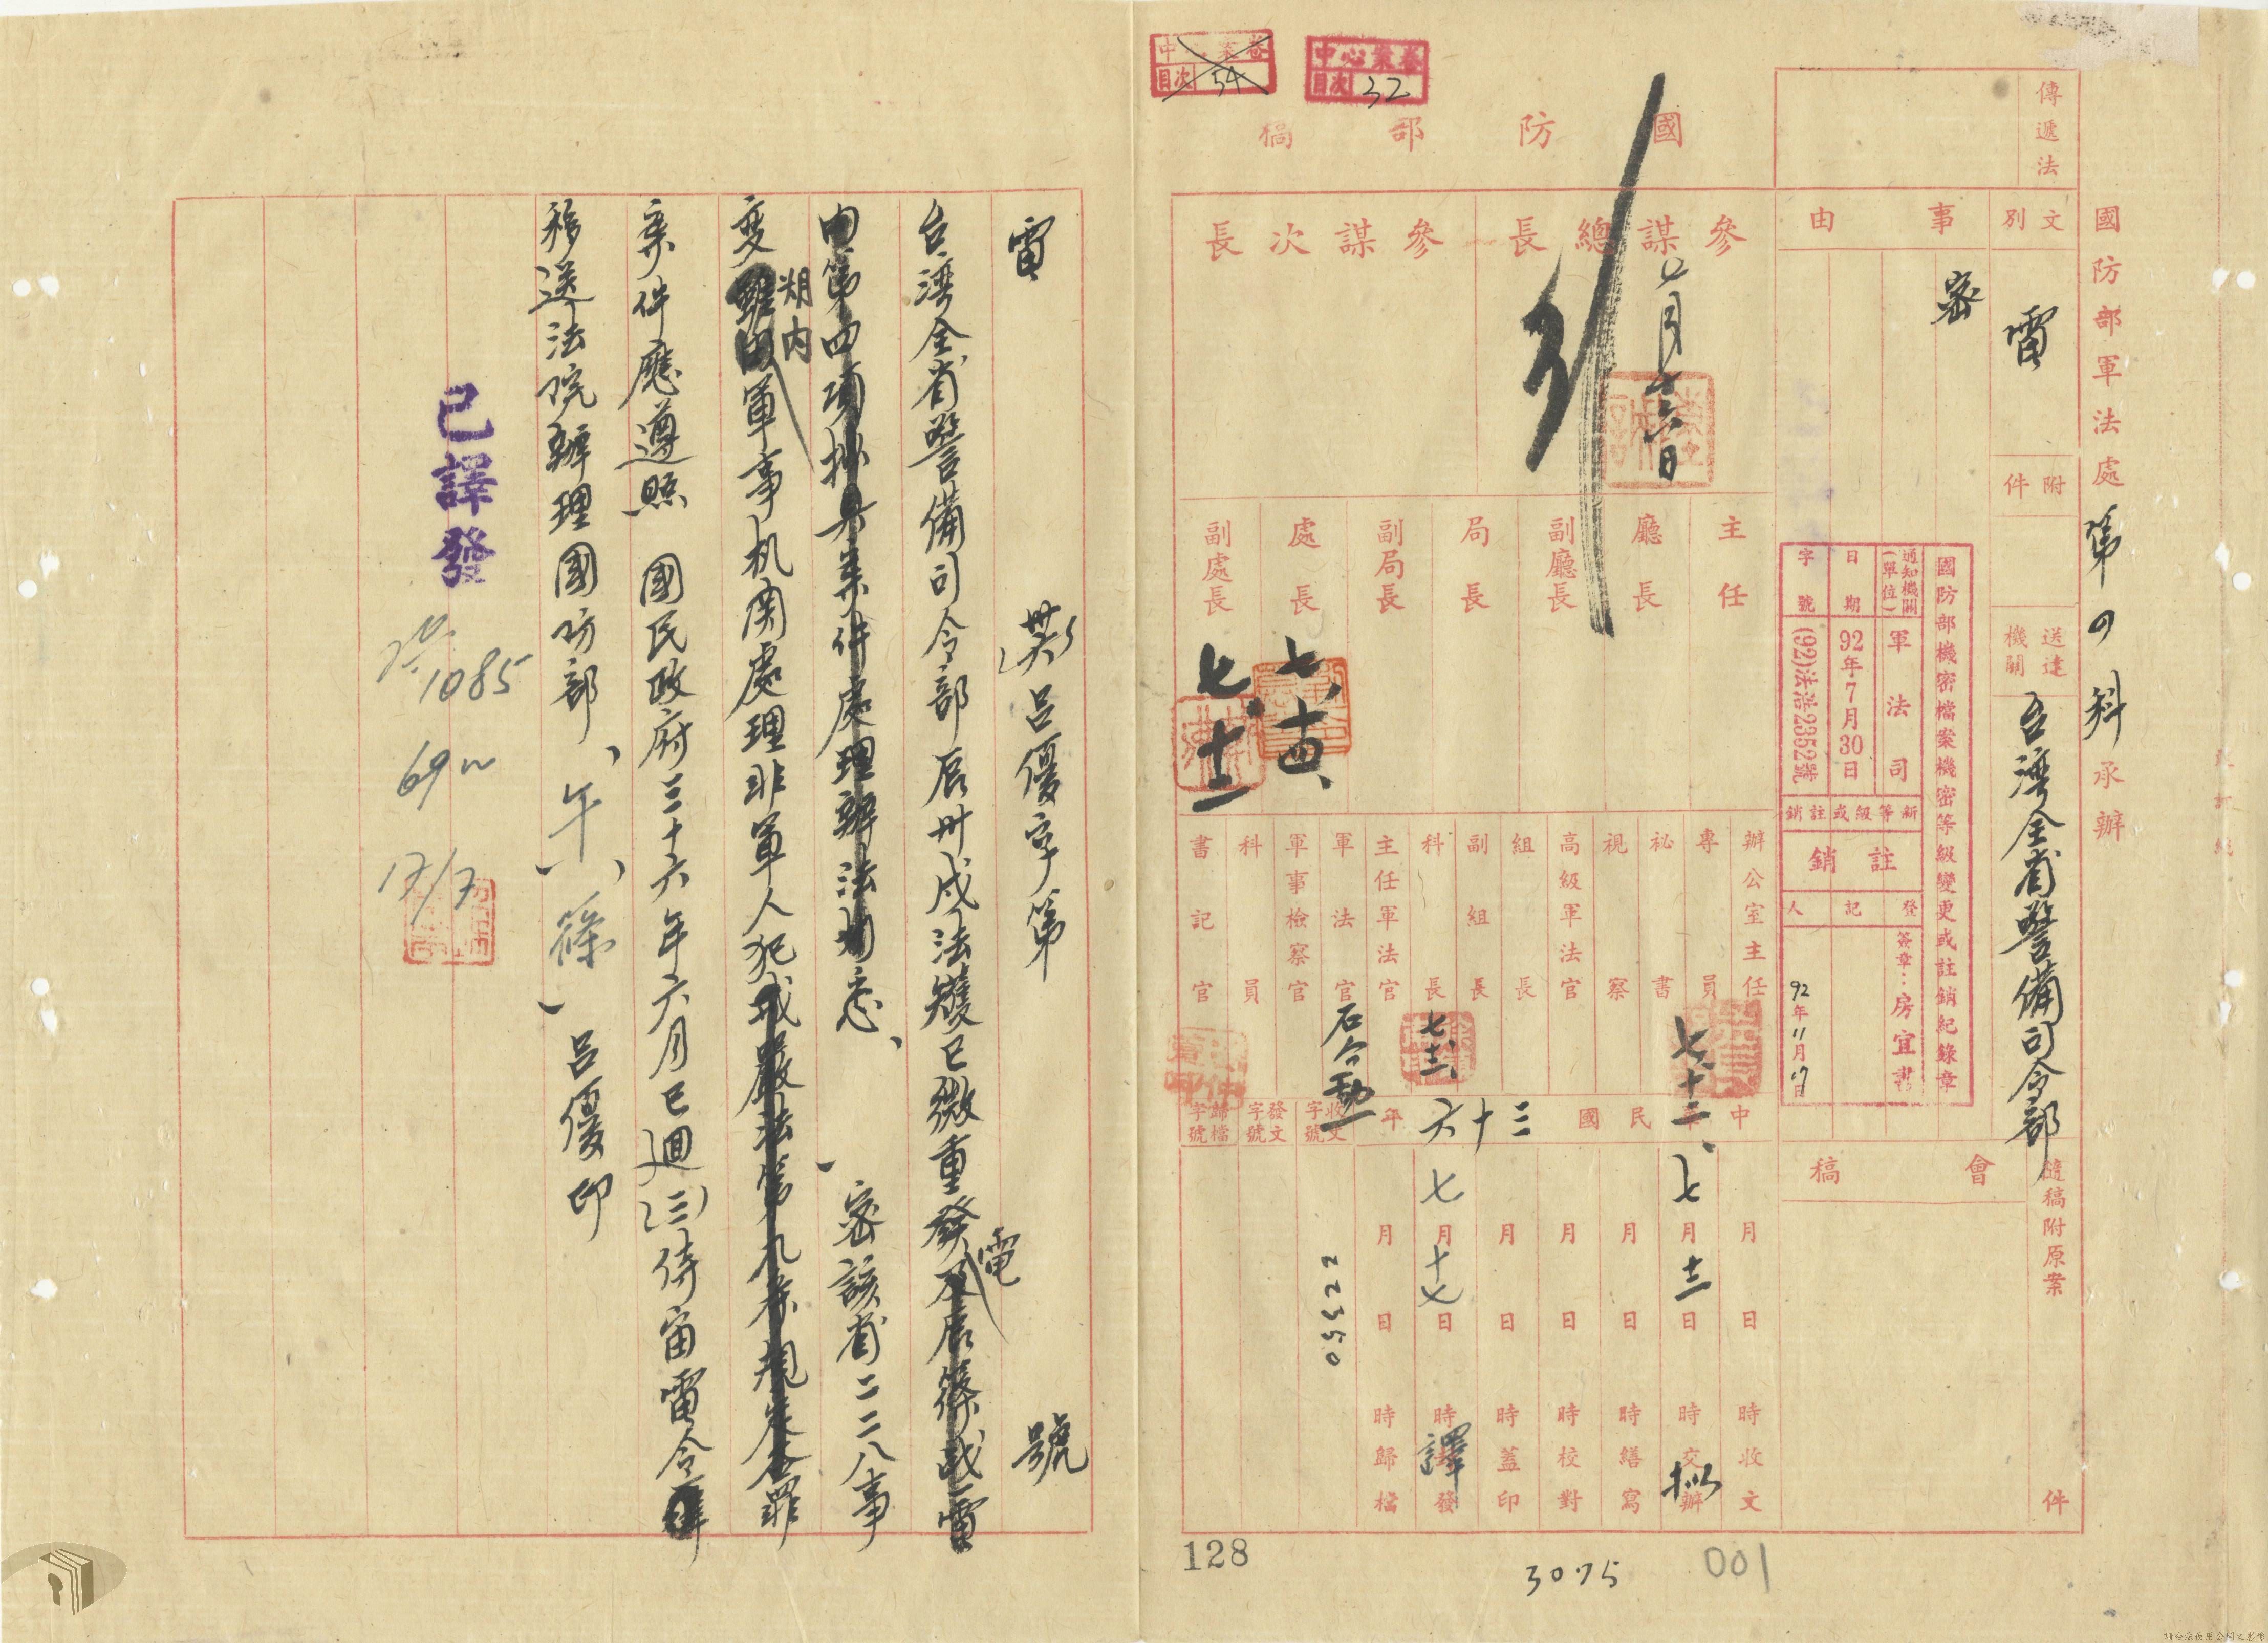 國防部軍法處第四科承辦
傳遞法
文別
電
附件
送達機關
台灣全省警備司令部
隨稿附原案
件
事由
密
會稿
國防部機密檔案機密等級變更或註銷紀錄章
通知機關(單位)
軍法司
日期
92年7月30日
字號
(92)法浩2352號
新等級或註銷
註銷
登記人
簽章:房宜書
92年11月17日
中心業卷
目次 32
目次 54
國防部稿
參謀總長
七月十六日
參謀次長
主任
廳長
副廳長
局長
副局長
處長
七、十四、
副處長
七、十二
辦公室主任
專員
七、十二、
秘書
視察
高級軍法官
組長
副組長
科長
七、十二、
主任軍法官
軍法官
石台勳
軍事檢察官
科員
書記官
中華民國三十六年
收文字號
發文字號
歸檔字號
月日時收文
七月十二日時交辦
擬
月日時繕寫
月日時校對
月日時蓋印
七月十七日時封發
譯
月日時歸檔
05522
128
3075
001
電 (卅六)呂優字第 號
台灣全省警備司令部辰卅戍法矱巳微重發電
悉、密該省二二八事
變期內軍事机関處理非軍人犯罪
案件應遵照 國民政府三十六年六月巳迴(三)侍宙電令
移送法院辦理國防部、午、篠、呂優印
已譯發
1085
69
17/7
請合法使用公開之影像